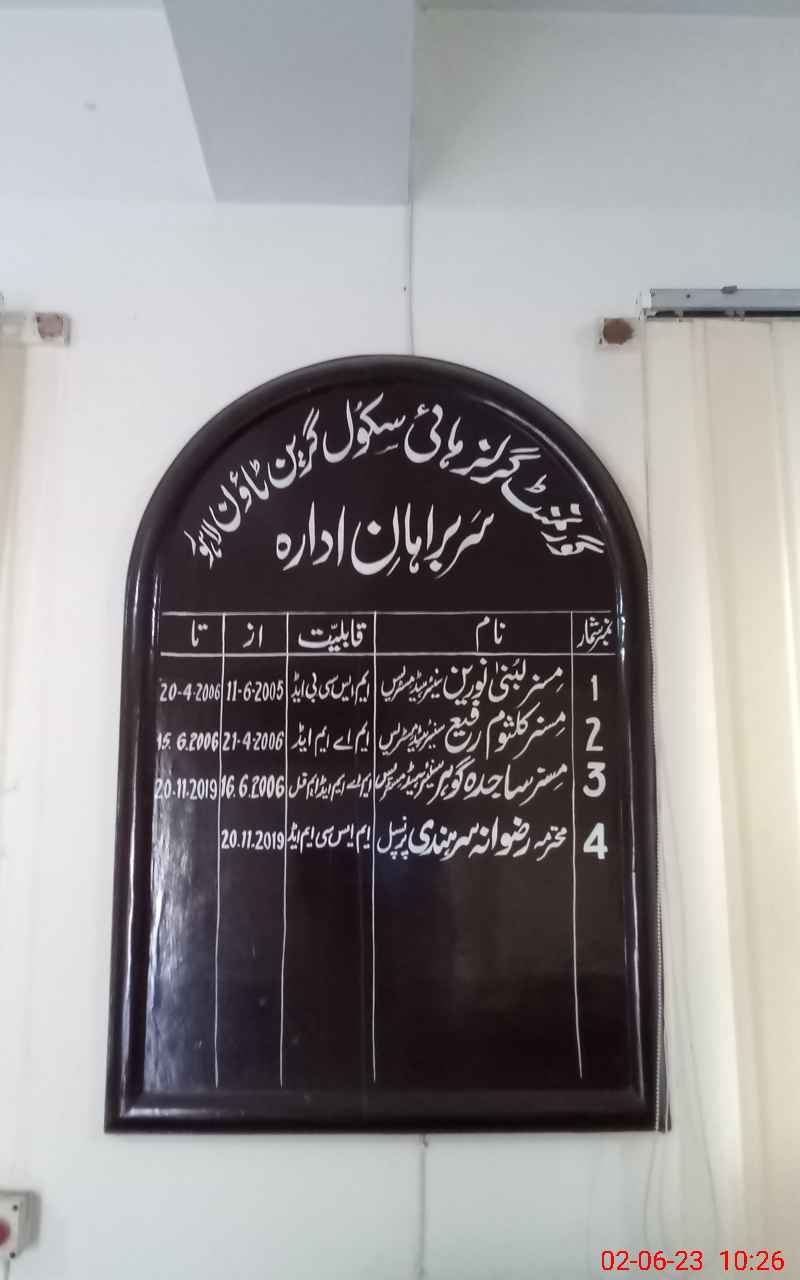 گورنمنٹ گرلز ہائی سکول گرین ٹاؤن لاہور
سربراہانِ ادارہ
نمبر شمار نام قابلیّت از تا
1 مسز لبنیٰ نورین سینئر ہیڈ مسٹریس ایم ایس سی بی ایڈ 11-6-2005 20-4-2006
2 مسز کلثوم رفیع سینئر ہیڈ مسٹریس ایم اے ایم ایڈ 21-4-2006 15.6.2006
3 مسز ساجدہ گوہر سینئر ہیڈ مسٹریس ایم اے ایم ایڈ ایم فل 16.6.2006 20.11.2019
4 محترمہ رضوانہ سرہندی پرنسپل ایم ایس سی ایم ایڈ 20.11.2019
02-06-23 10:26